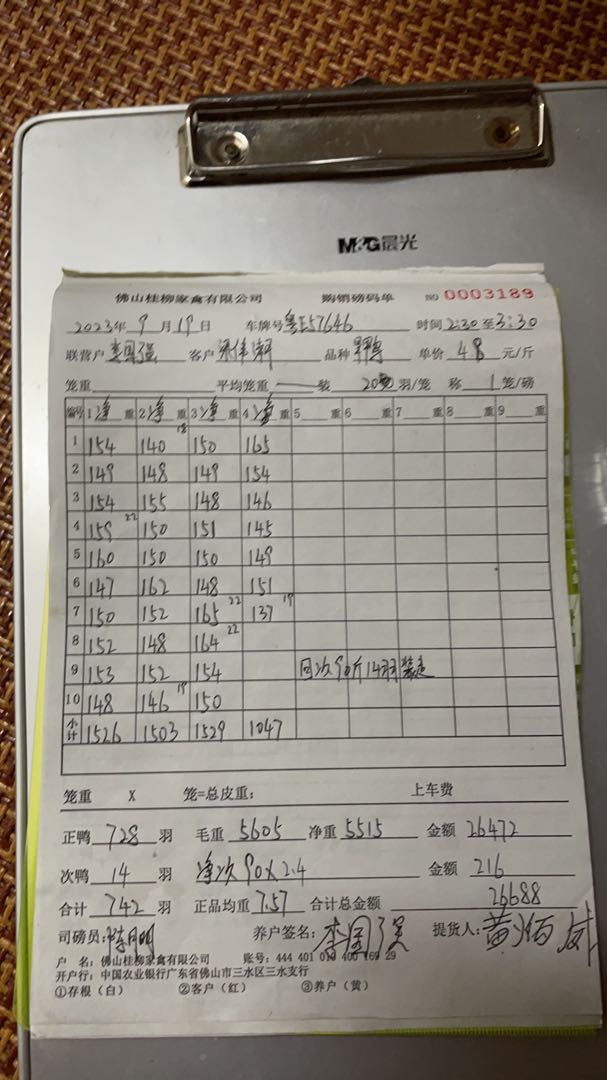 M&G晨光
佛山桂柳家禽有限公司 购销磅码单 NO 0003189
2023年 9月 19日 车牌号 粤E57646 时间 2:30 至 3:30
联营户 李国强 客户 品种 单价 4.8 元/斤
笼重 平均笼重 — 装 20 羽/笼 称 1 笼/磅
编号 1 净 重 2 净 重 3 净 重 4 净 重 5 重 6 重 7 重 8 重 9 重
1 154 140 18 150 165
2 149 148 149 154
3 154 155 148 146
4 159 22 150 151 145
5 160 150 150 149
6 147 162 148 151
7 150 152 165 22 137 19
8 152 148 164 22
9 153 152 154 回次90斤14羽装走
10 148 146 19 150
小计 1526 1503 1529 1047
笼重 X 笼=总皮重: 上车费
正鸭 728 羽 毛重 5605 净重 5515 金额 26472
次鸭 14 羽 净次90X2.4 金额 216
合计 742 羽 正品均重 7.57 合计总金额 26688
司磅员: 养户签名: 李国强 提货人: 黄
户 名: 佛山桂柳家禽有限公司 账号: 444 401 010 400 169 29
开户行: 中国农业银行广东省佛山市三水区三水支行
①存根（白） ②客户（红） ③养户（黄）